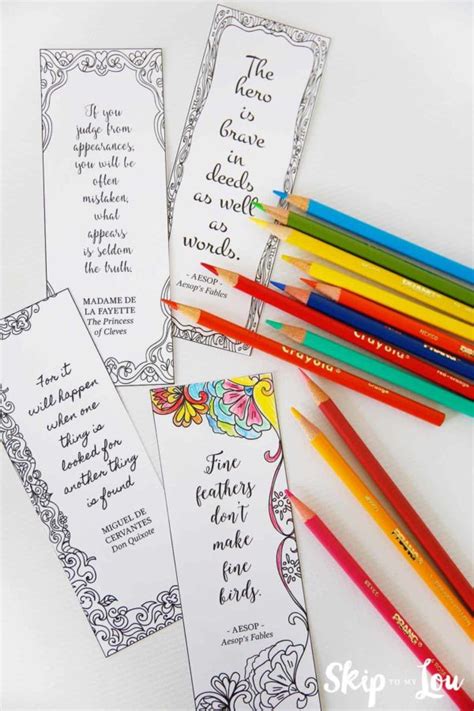 If you
judge from
appearances,
you will be
often
mistaken,
what
appears
is seldom
the truth.
MADAME DE
LA FAYETTE
The Princess
of Cleves
The
hero is
brave
in
deeds
as well
as
words.
- AESOP -
Aesop's Fables
For it
will happen
when one
thing is
looked for
another thing
is found
MIGUEL DE
CERVANTES
Don Quixote
Fine
feathers
don't
make
fine
birds.
- AESOP -
Aesop's Fables
Crayola
Crayola
PRANG
PRANG
PRANG
Skip TO MY Lou